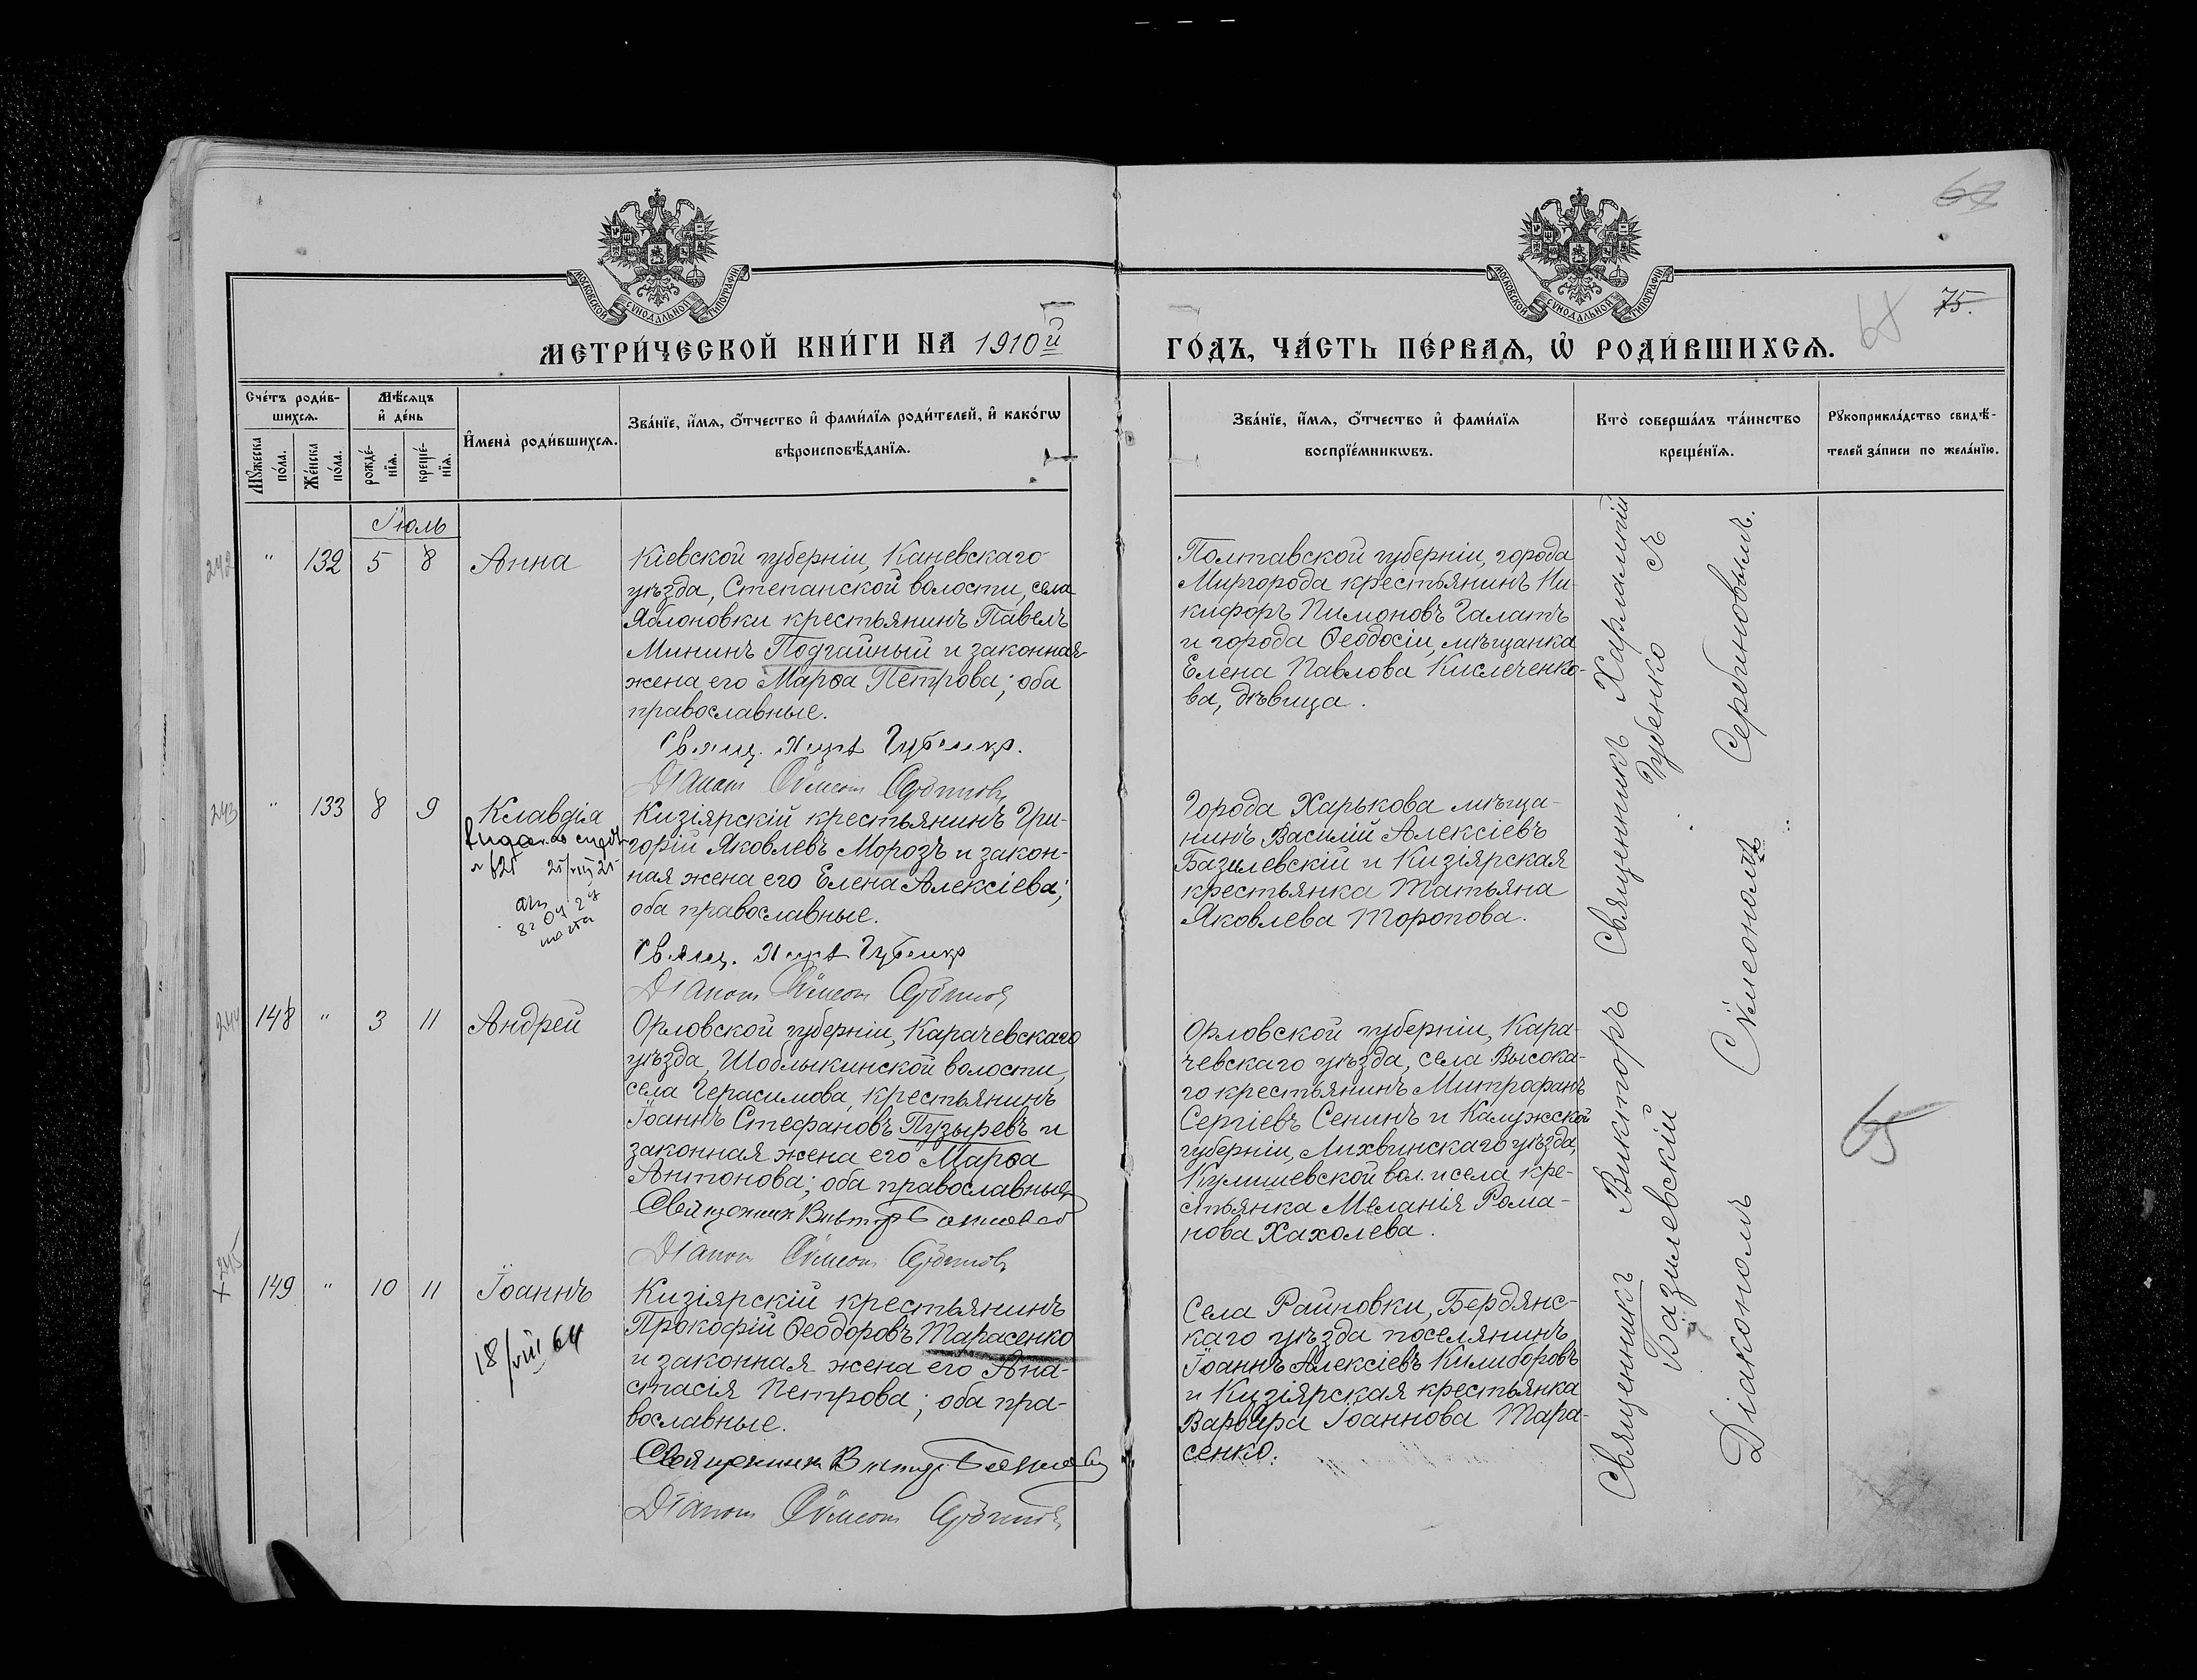 МОСКОВСКОЙ СѴНОДАЛЬНОЙ ТИПОГРАФІИ
МОСКОВСКОЙ СѴНОДАЛЬНОЙ ТИПОГРАФІИ
75.
МЕТРИ́ЧЕСКОЙ КНИ́ГИ НА 1910й
ГО́ДЪ, ЧА́СТЬ ПЕ́РВАѦ, Ѡ РОДИ́ВШИХСѦ.
Сче́тъ роди́в-
шихсѧ.
Мꙋжеска
по́ла.
Же́нска
по́ла.
Мѣ́сѧцъ
и҆ де́нь
рожде́-
нїѧ.
креще́-
нїѧ.
И҆мена̀ роди́вшихсѧ.
Зва́нїе, и҆́мѧ, ѻ҆́тчество и҆ фами́лїѧ роди́телей, и҆ како́гѡ
вѣроисповѣ́данїѧ.
Зва́нїе, и҆́мѧ, ѻ҆́тчество и҆ фами́лїѧ
воспрїе́мникѡвъ.
Кто̀ соверша́лъ та́инство
креще́нїѧ.
Рꙋкоприкла́дство свидѣ́-
телей за́писи по жела́нїю.
Іюль
242 " 132 5 8 Анна
Кіевской губерніи, Каневскаго
уѣзда, Степанской волости, села
Яблоновки крестьянинъ Павелъ
Мининъ Подгайный и законная
жена его Марѳа Петрова; оба
православные.
Свящ. Хар. Губенко.
Діаконъ Сѵмеонъ Сербиновъ
Полтавской губерніи, города
Миргорода крестьянинъ Ни-
кифоръ Пимоновъ Галатъ
и города Ѳеодосіи, мѣщанка
Елена Павлова Кислеченко-
ва, дѣвица.
243 " 133 8 9 Клавдія
25/VIII 25
Кизіярскій крестьянинъ Гри-
горій Яковлевъ Морозъ и закон-
ная жена его Елена Алексіева;
оба православные.
Свящ. Хар. Губенко
Діаконъ Сѵмеонъ Сербиновъ
Города Харькова мѣща-
нинъ Василій Алексіевъ
Базилевскій и Кизіярская
крестьянка Татьяна
Яковлева Торопова.
244 148 " 3 11 Андрей
Орловской губерніи, Карачевскаго
уѣзда, Шоблыкинской волости,
села Герасимова, крестьянинъ
Іоаннъ Стефановъ Пузыревъ и
законная жена его Марѳа
Антонова; оба православные
Священникъ Викторъ Базилевскій
Діаконъ Сѵмеонъ Сербиновъ
Орловской губерніи, Кара-
чевскаго уѣзда, села Высока-
го крестьянинъ Митрофанъ
Сергіевъ Сенинъ и Калужской
губерніи, Лихвинскаго уѣзда,
Кулишевской вол. и села кре-
стьянка Меланія Рома-
нова Хахолева.
245 149 " 10 11 Іоаннъ
18/VIII 64
Кизіярскій крестьянинъ
Прокофій Ѳеодоровъ Тарасенко
и законная жена его Ана-
стасія Петрова; оба пра-
вославные.
Священникъ Викторъ Базилевскій
Діаконъ Сѵмеонъ Сербиновъ
Села Райновки, Бердянс-
каго уѣзда поселянинъ
Іоаннъ Алексіевъ Килиборовъ
и Кизіярская крестьянка
Варвара Іоаннова Тара-
сенко.
Священникъ Харлампій
Губенко съ
Священникъ Викторъ
Базилевскій
Діакономъ Сѵмеономъ Сербиновымъ.
65